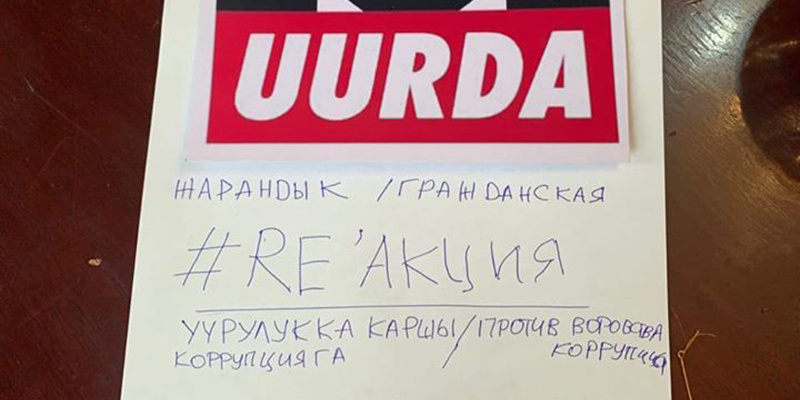 UURDA
ЖАРАНДЫК / ГРАЖДАНСКАЯ
#RE'АКЦИЯ
УУРУЛУККА КАРШЫ / ПРОТИВ ВОРОВСТВА
КОРРУПЦИЯГА КОРРУПЦИИ